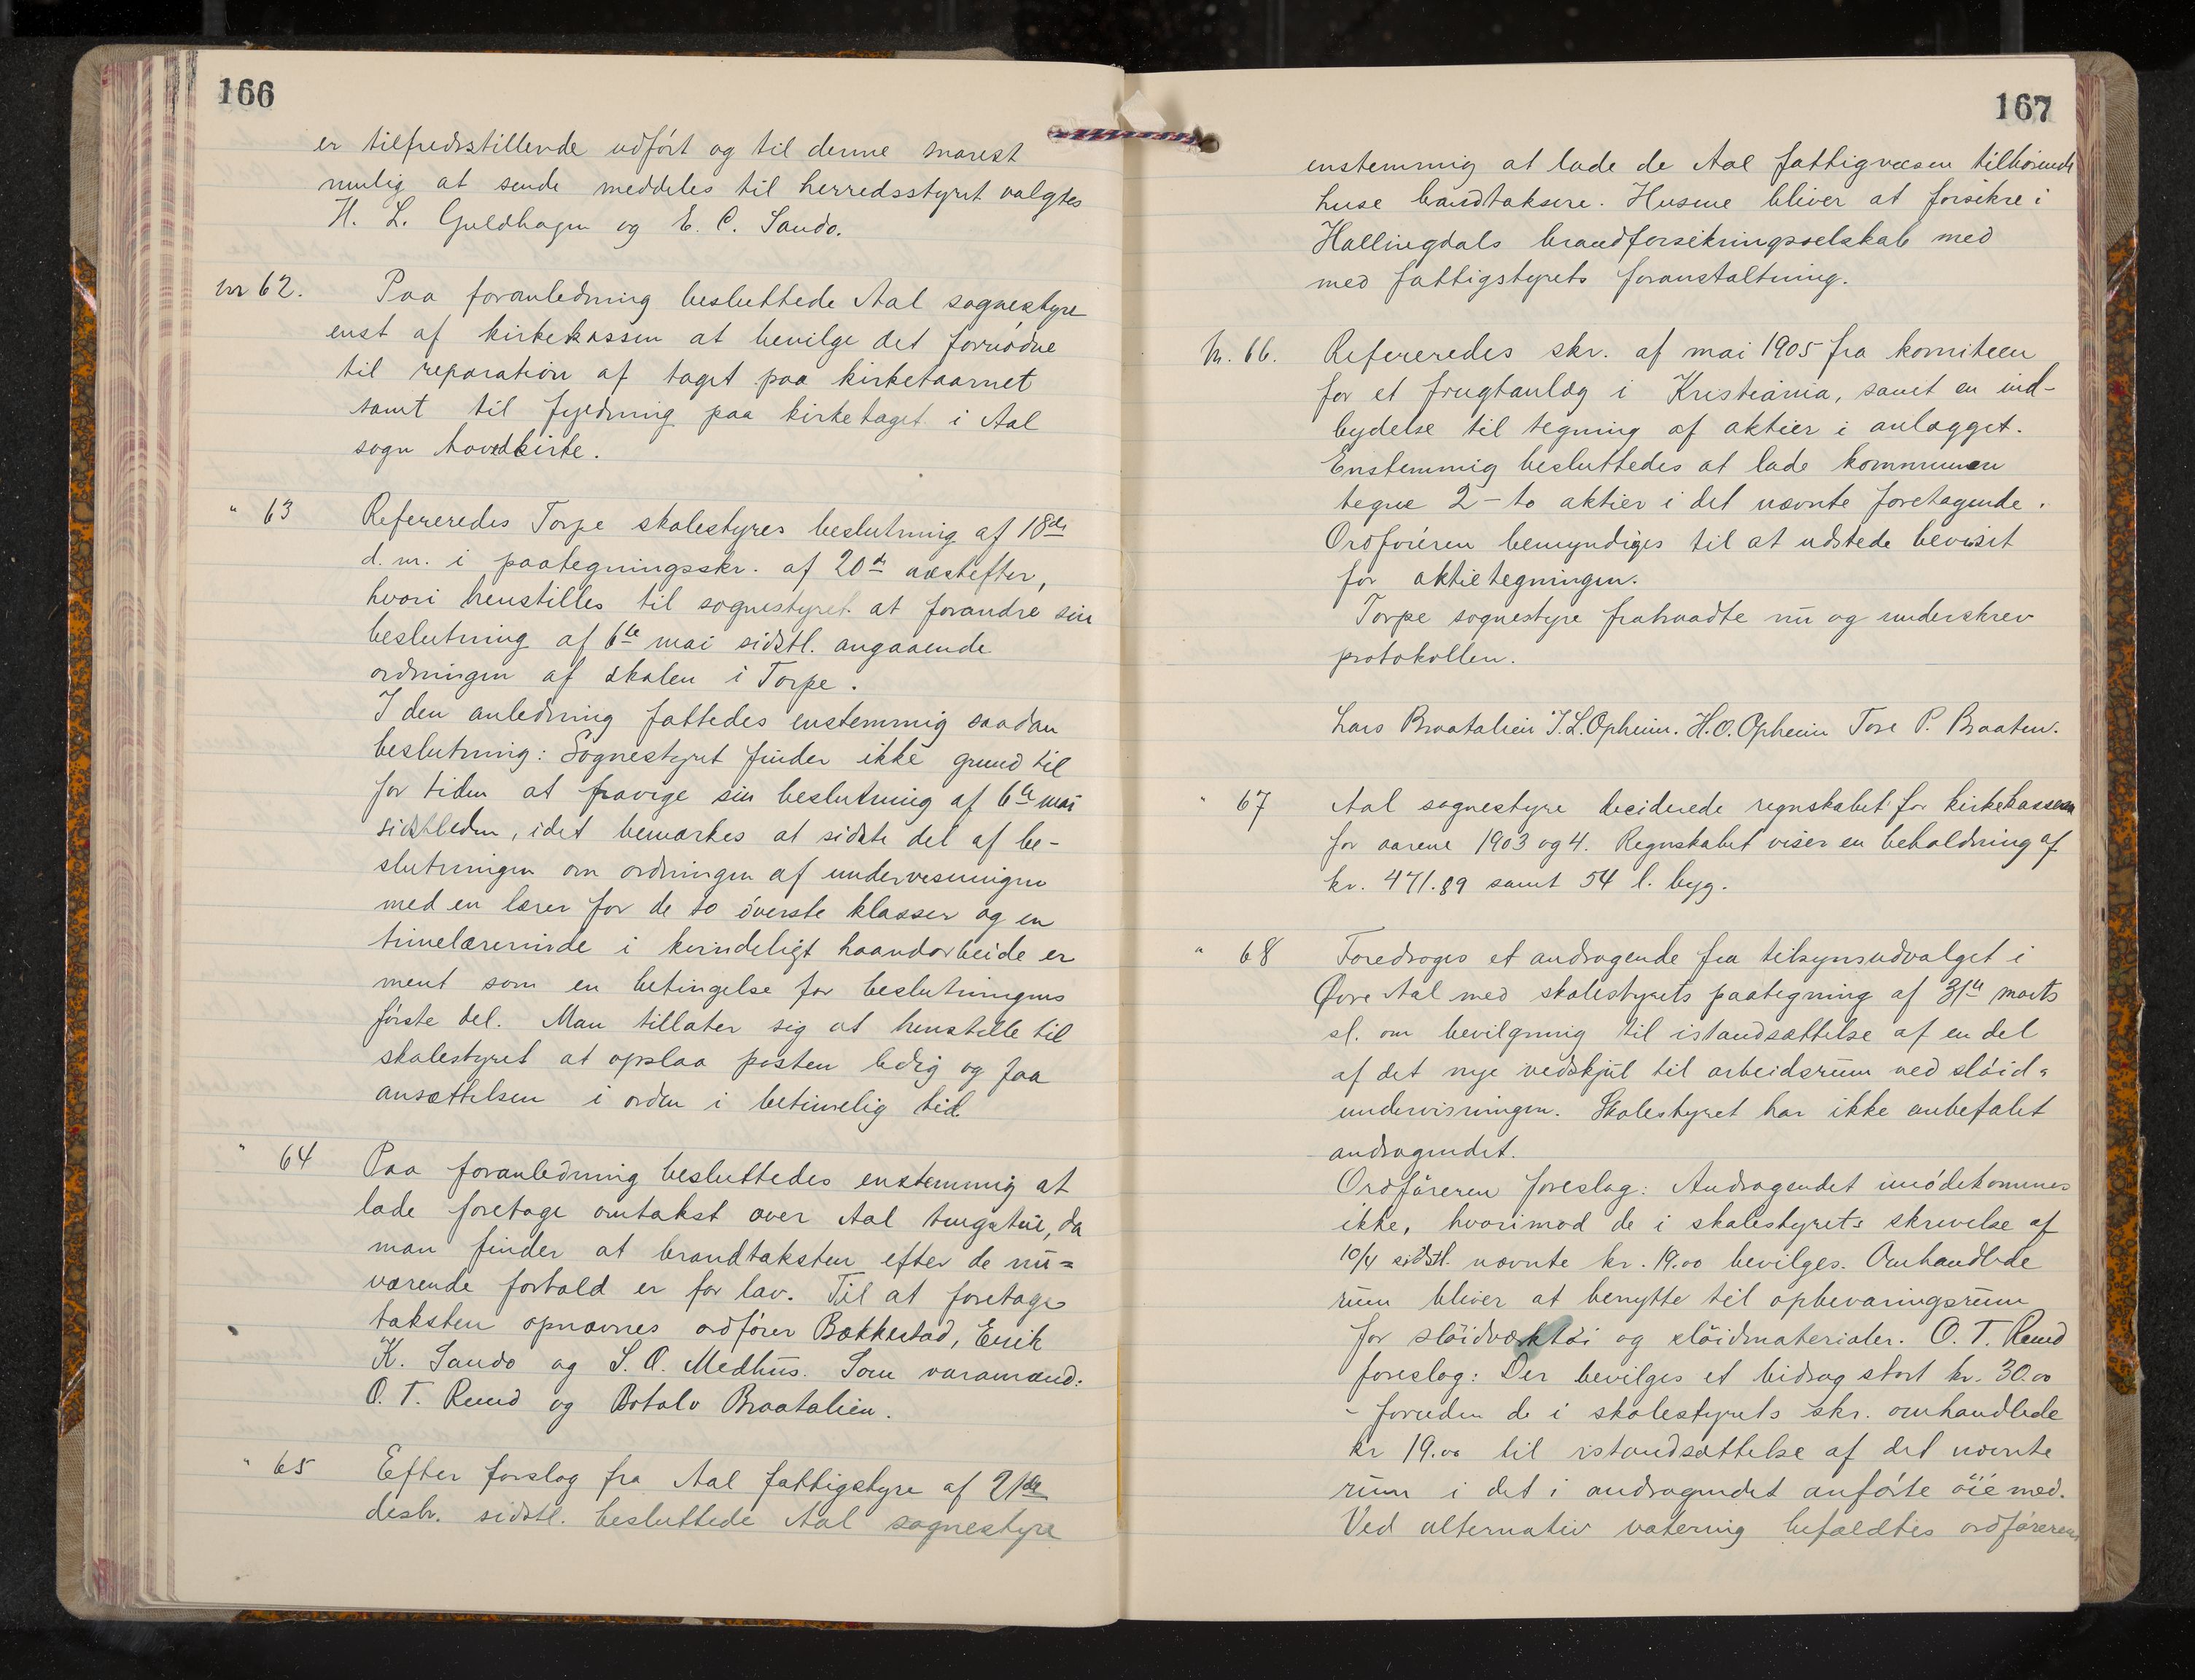 166
er tilfredsstillende udført og til denne snarest
mulig at sende meddeles til herredsstyret valgtes
H. L. Guldhagen og E. C. Sando.
nr 62. Paa foranledning besluttede Aal sognestyre
enst af kirkekassen at bevilge det fornødne
til reparation af taget paa kirketaarnet
samt til fyldning paa kirketaget i Aal
sogn hovedkirke.
" 63 Refereredes Torpe skolestyres beslutning af 18de
d. m. i paategningsskr. af 20de næstefter,
hvori henstilles til sognestyret at forandre sin
beslutning af 6te mai sidstl. angaaende
ordningen af skolen i Torpe.
I den anledning fattedes enstemmig saadan
beslutning: Sognestyret finder ikke grund til
for tiden at fravige sin beslutning af 6te mai
sidstleden, idet bemærkes at sidste del af be-
slutningen om ordningen af undervisningen
med en lærer for de to øverste klasser og en
timelærerinde i kvindeligt haandarbeide er
ment som en betingelse for beslutningens
første del. Man tillater sig at henstille til
skolestyret at opslaa posten ledig og faa
ansættelsen i orden i betimelig tid
" 64 Paa foranledning besluttedes enstemmig at
lade foretage omtakst over Aal tingstue, da
man finder at brandtaksten efter de nu=
værende forhold er for lav. Til at foretage
taksten opnævnes ordfører Bækkestad, Erik
K. Sando og S. O. Medhus. Som varamænd:
O. T. Ruud og Botolv Braatalien.
" 65 Efter forslag fra Aal fattigstyre af 21de
desbr. sidstl. besluttede Aal sognestyre
167
enstemmig at lade de Aal fattigvæsen tilhørende
huse brandtaksere. Husene bliver at forsikre i
Hallingdals brandforsikringsselskab med
med fattigstyrets foranstaltning.
Nr. 66. Refereredes skr. af mai 1905 fra komiteen
for et frugtanlæg i Kristiania, samt en ind-
bydelse til tegning af aktier i anlægget.
Enstemmig besluttedes at lade kommunen
tegne 2 - to aktier i det nævnte foretagende.
Ordføreren bemyndiges til at udstede beviset
for aktietegningen.
Torpe sognestyre fratraadte nu og underskrev
protokollen.
Lars Braatalien T. L. Opheim. H. O. Opheim Tore P. Braaten.
" 67 Aal sognestyre deciderede regnskabet for kirkekassen
for aarene 1903 og 4. Regnskabet viser en beholdning af
kr. 471.89 samt 54 l. byg.
" 68 Foredroges et andragende fra tilsynsudvalget i
Øvre Aal med skolestyrets paategning af 31te marts
sl. om bevilgning til istandsættelse af en del
af det nye vedskjul til arbeidsrum ved sløid=
undervisningen. Skolestyret har ikke anbefalet
andragendet.
Ordføreren foreslog: Andragendet imødekommes
ikke, hvorimod de i skolestyrets skrivelse af
10/4 sidstl. nævnte kr. 19.00 bevilges. Omhandlede
rum bliver at benytte til opbevaringsrum
for sløidværktøi og sløidmaterialer. O. T. Ruud
foreslog: Der bevilges et bidrag stort kr. 30.00
- foruden de i skolestyrets skr. omhandlede
kr 19.00 til istandsættelse af det nævnte
rum i det i andragendet anførte øiemed.
Ved alternativ votering befaldtes ordførerens